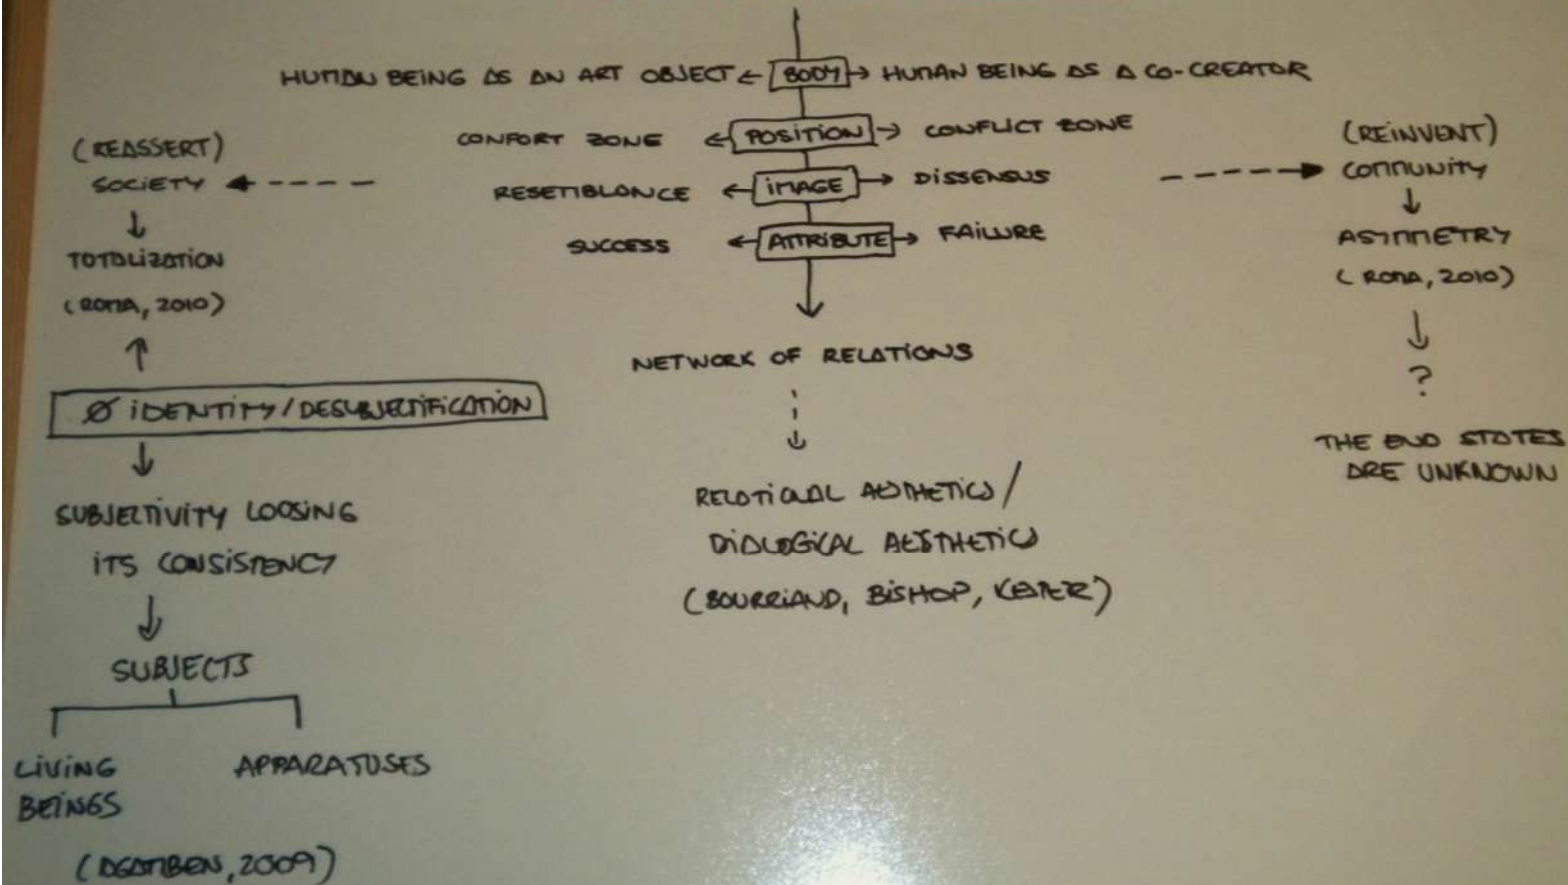 HUMAN BEING AS AN ART OBJECT ← BODY → HUMAN BEING AS A CO-CREATOR
CONFORT ZONE ← POSITION → CONFLICT ZONE
RESEMBLANCE ← IMAGE → DISSENSUS
SUCCESS ← ATTRIBUTE → FAILURE
NETWORK OF RELATIONS
RELATIONAL AESTHETICS /
DIALOGICAL AESTHETICS
(BOURRIAND, BISHOP, KESTER)
(REASSERT)
SOCIETY
TOTALIZATION
(ROMA, 2010)
Ø IDENTITY/DESUBJECTIFICATION
SUBJECTIVITY LOOSING
ITS CONSISTENCY
SUBJECTS
LIVING
BEINGS
APPARATUSES
(AGAMBEN, 2009)
(REINVENT)
COMMUNITY
ASYMMETRY
(ROMA, 2010)
?
THE END STATES
ARE UNKNOWN